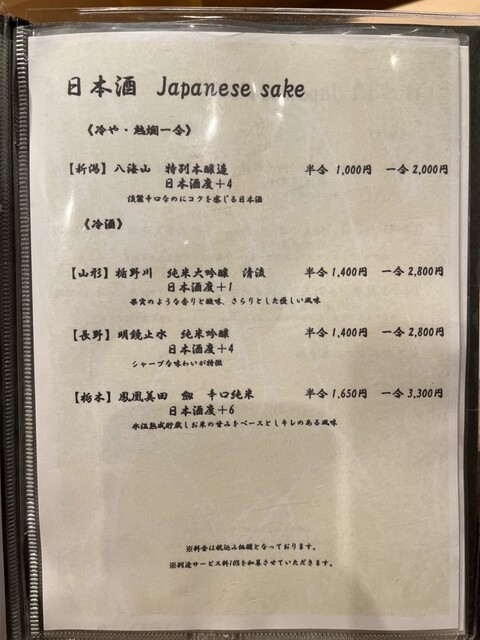 日本酒 Japanese sake
《冷や・熱燗一合》
【新潟】八海山 特別本醸造 半合 1,000円 一合 2,000円
日本酒度+4
淡麗辛口なのにコクを感じる日本酒
《冷酒》
【山形】楯野川 純米大吟醸 清流 半合 1,400円 一合 2,800円
日本酒度+1
果実のような香りと酸味、さらりとした優しい風味
【長野】明鏡止水 純米吟醸 半合 1,400円 一合 2,800円
日本酒度+4
シャープな味わいが特徴
【栃木】鳳凰美田 劔 辛口純米 半合 1,650円 一合 3,300円
日本酒度+6
氷温熟成貯蔵しお米の甘みをベースとしキレのある風味
※料金は税込み価額となっております。
※別途サービス料10%を加算させていただきます。